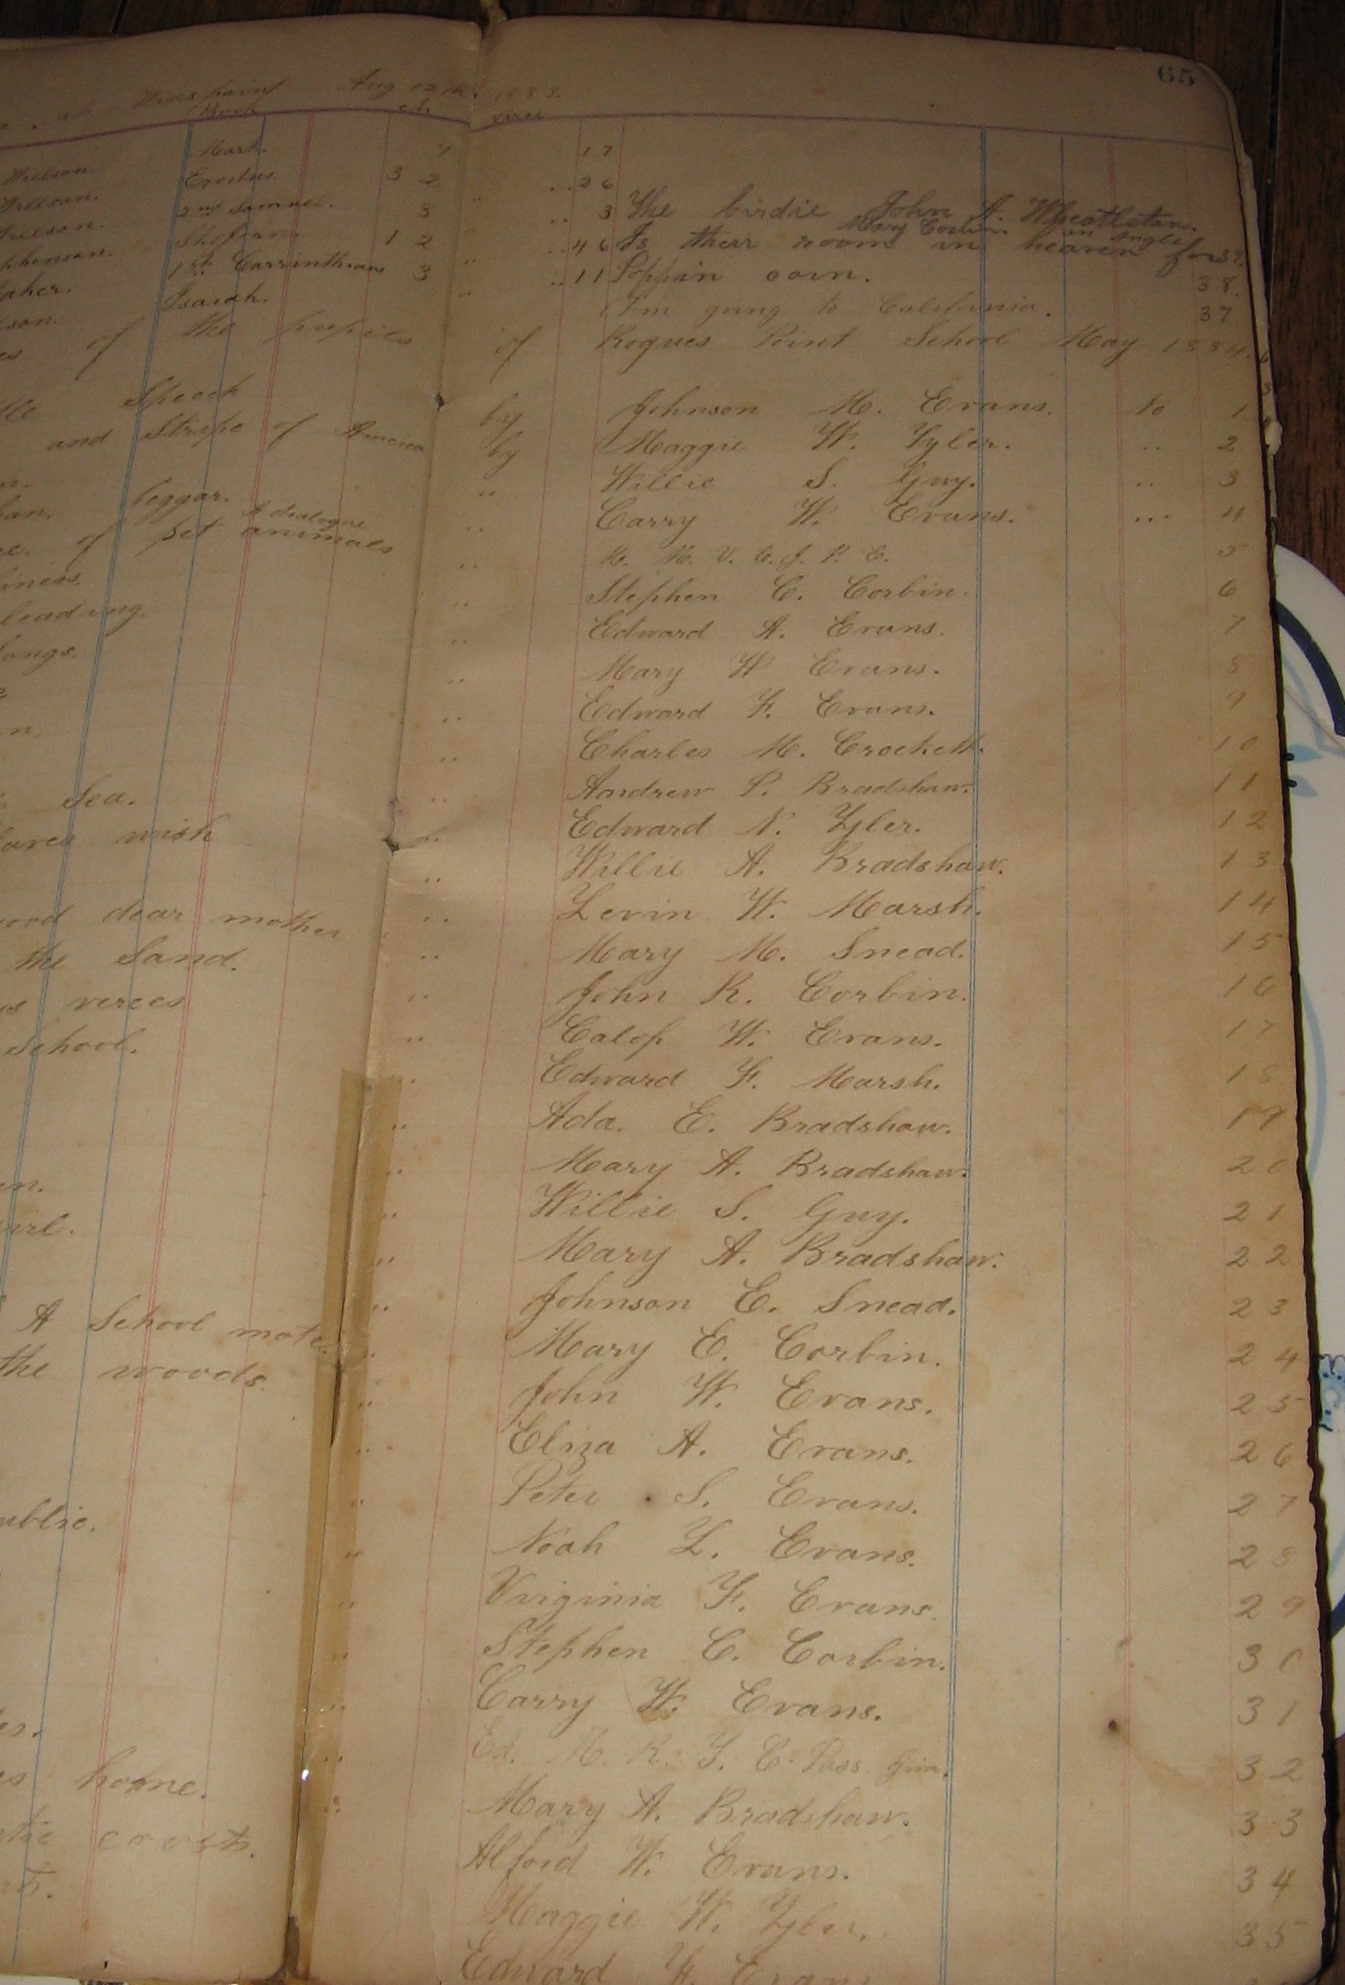 65
Aug 12th. 1883.
Book ch. verse
Mark. 7 17
Wilson. Exodus. 3 2 .. 26
Wilson. 2nd Samuel. 8 .. 3 The birdie John A. Wheatleton.
Wilson. 1 2 .. 46 Is their room in heaven for
Mary Corbin. in Angle
1st Corrinthians 3 .. 11 Poppin corn. 38
Isaiah. I'm going to California. 37
of the pupils of Rogues Point School May 1884.
Speech by Johnson M. Evans. to 1
and Stripe of America by Maggie W. Tyler. .. 2
.. Willie S. Guy. .. 3
beggar. .. Carry W. Evans. ... 4
A dialogue
of pet animals .. M. M. V. C. J. P. C. 5
.. Stephen C. Corbin. 6
leading .. Edward A. Evans. 7
songs. .. Mary W. Evans. 8
.. Edward F. Evans. 9
.. Charles M. Crockett. 10
Sea. .. Aandrew P. Bradshaw. 11
wish .. Edward N. Tyler. 12
.. Willie A. Bradshaw. 13
dear mother .. Levin W. Marsh. 14
the Sand. .. Mary M. Snead. 15
verees .. John R. Corbin. 16
School. .. Calop W. Evans. 17
.. Edward F. Marsh. 18
.. Ada. E. Bradshaw. 19
.. Mary A. Bradshaw. 20
.. Willie S. Guy. 21
.. Mary A. Bradshaw. 22
A School mate. .. Johnson E. Snead. 23
the woods. .. Mary E. Corbin. 24
.. John W. Evans. 25
.. Eliza A. Evans. 26
.. Peter S. Evans. 27
.. Noah L. Evans. 28
.. Virginia F. Evans. 29
.. Stephen C. Corbin. 30
.. Carry W. Evans. 31
home. .. Ed. M. R. T. C. 32
.. Mary A. Bradshaw. 33
Alford W. Evans. 34
Maggie W. Tyler. 35
Edward F. Evans